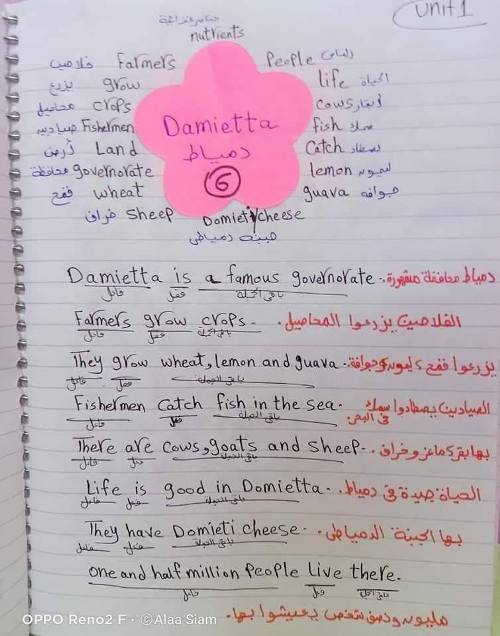 unit 1
عناصر غذائية
nutrients
فلاحين Farmers
People الناس
يزرع grow
life الحياة
محاصيل crops
cows أبقار
صيادين Fishermen
Damietta
fish سمك
أرض Land
دمياط
Catch يصطاد
محافظة governorate
6
lemon ليمون
قمح wheat
guava جوافة
خراف sheep
Domieti cheese
جبنه دمياطى
Damietta is a famous governorate. دمياط محافظة مشهورة.
فاعل فعل باقى الجملة
Farmers grow crops. الفلاحين يزرعوا المحاصيل.
فاعل فعل باقى الجملة
They grow wheat, lemon and guava. يزرعوا قمح وليمون وجوافة.
فاعل فعل باقى الجملة
Fishermen catch fish in the sea. الصيادين يصطادوا سمك فى البحر.
فاعل فعل باقى الجملة
There are cows, goats and sheep. بها بقر وماعز وخراف.
فاعل فعل باقى الجملة
Life is good in Domietta. الحياة جيدة فى دمياط.
فاعل فعل باقى الجملة
They have Domieti cheese. بها الجبنة الدمياطى.
فاعل فعل باقى الجملة
one and half million people live there.
فاعل فعل باقى الجملة
مليون ونصف شخص يعيشوا بها.
OPPO Reno2 F · ©Alaa Siam